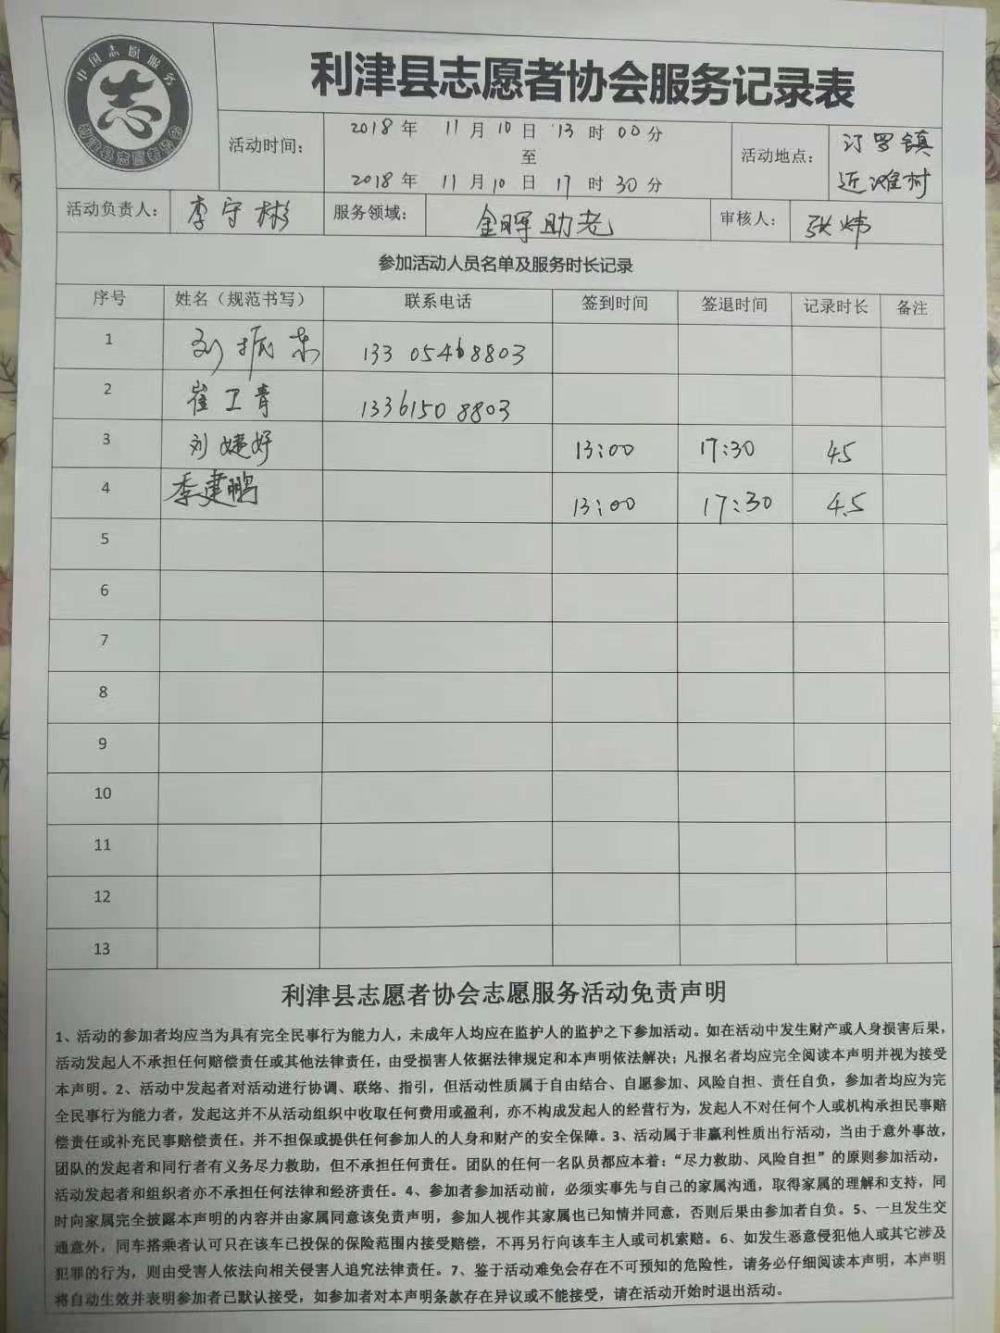 中国志愿服务
志
利津县志愿者协会服务记录表
活动时间：
2018年 11月10日 13时00分
至
2018年 11月10日 17时30分
活动地点：
汀罗镇
近滩村
活动负责人：
李守彬
服务领域：
金晖助老
审核人：
张炜
参加活动人员名单及服务时长记录
序号 姓名（规范书写） 联系电话 签到时间 签退时间 记录时长 备注
1 刘振东 13305468803
2 崔卫青 13361508803
3 刘婕妤 13:00 17:30 4.5
4 李建鹏 13:00 17:30 4.5
5
6
7
8
9
10
11
12
13
利津县志愿者协会志愿服务活动免责声明
1、活动的参加者均应当为具有完全民事行为能力人，未成年人均应在监护人的监护之下参加活动。如在活动中发生财产或人身损害后果，
活动发起人不承担任何赔偿责任或其他法律责任，由受损害人依据法律规定和本声明依法解决；凡报名者均应完全阅读本声明并视为接受
本声明。2、活动中发起者对活动进行协调、联络、指引，但活动性质属于自由结合、自愿参加、风险自担、责任自负，参加者均应为完
全民事行为能力者，发起这并不从活动组织中收取任何费用或盈利，亦不构成发起人的经营行为，发起人不对任何个人或机构承担民事赔
偿责任或补充民事赔偿责任，并不担保或提供任何参加人的人身和财产的安全保障。3、活动属于非赢利性质出行活动，当由于意外事故，
团队的发起者和同行者有义务尽力救助，但不承担任何责任。团队的任何一名队员都应本着：“尽力救助、风险自担”的原则参加活动，
活动发起者和组织者亦不承担任何法律和经济责任。4、参加者参加活动前，必须实事先与自己的家属沟通，取得家属的理解和支持，同
时向家属完全披露本声明的内容并由家属同意该免责声明，参加人视作其家属也已知情并同意，否则后果由参加者自负。5、一旦发生交
通意外，同车搭乘者认可只在该车已投保的保险范围内接受赔偿，不再另行向该车主人或司机索赔。6、如发生恶意侵犯他人或其它涉及
犯罪的行为，则由受害人依法向相关侵害人追究法律责任。7、鉴于活动难免会存在不可预知的危险性，请务必仔细阅读本声明，本声明
将自动生效并表明参加者已默认接受，如参加者对本声明条款存在异议或不能接受，请在活动开始时退出活动。